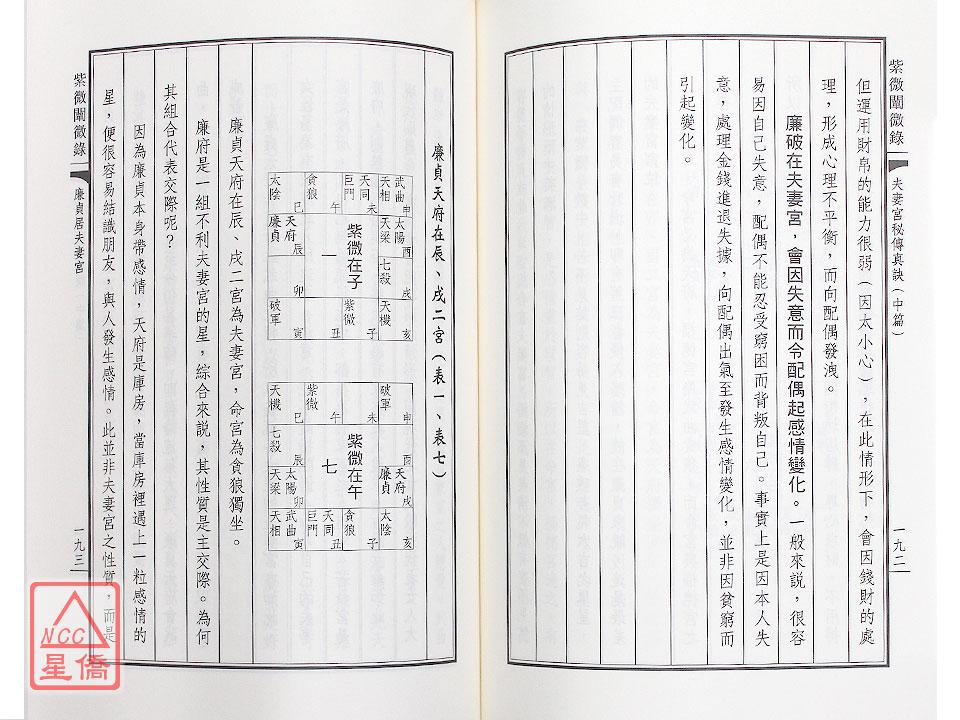 紫微闡微錄
夫妻宮秘傳真訣（中篇）
一九二
但運用財帛的能力很弱（因太小心），在此情形下，會因錢財的處
理，形成心理不平衡，而向配偶發洩。
廉破在夫妻宮，會因失意而令配偶起感情變化。一般來說，很容
易因自己失意，配偶不能忍受窮困而背叛自己。事實上是因本人失
意，處理金錢進退失據，向配偶出氣至發生感情變化，並非因貧窮而
引起變化。
廉貞天府在辰、戌二宮（表一、表七）
太陰 巳
貪狼 午
巨門 天同 未
天相 武曲 申
廉貞 天府 辰
紫微在子
一
天梁 太陽 酉
卯
七殺 戌
破軍 寅
丑
紫微 子
天機 亥
天機 巳
紫微 午
未
破軍 申
七殺 辰
紫微在午
七
酉
天梁 太陽 卯
廉貞 天府 戌
天相 武曲 寅
巨門 天同 丑
貪狼 子
太陰 亥
廉貞天府在辰、戌二宮為夫妻宮，命宮為貪狼獨坐。
廉府是一組不利夫妻宮的星，綜合來說，其性質是主交際。為何
其組合代表交際呢？
因為廉貞本身帶感情，天府是庫房，當庫房裡遇上一粒感情的
星，便很容易結識朋友，與人發生感情。此並非夫妻宮之性質，而是
紫微闡微錄
廉貞居夫妻宮
一九三
NCC
星僑